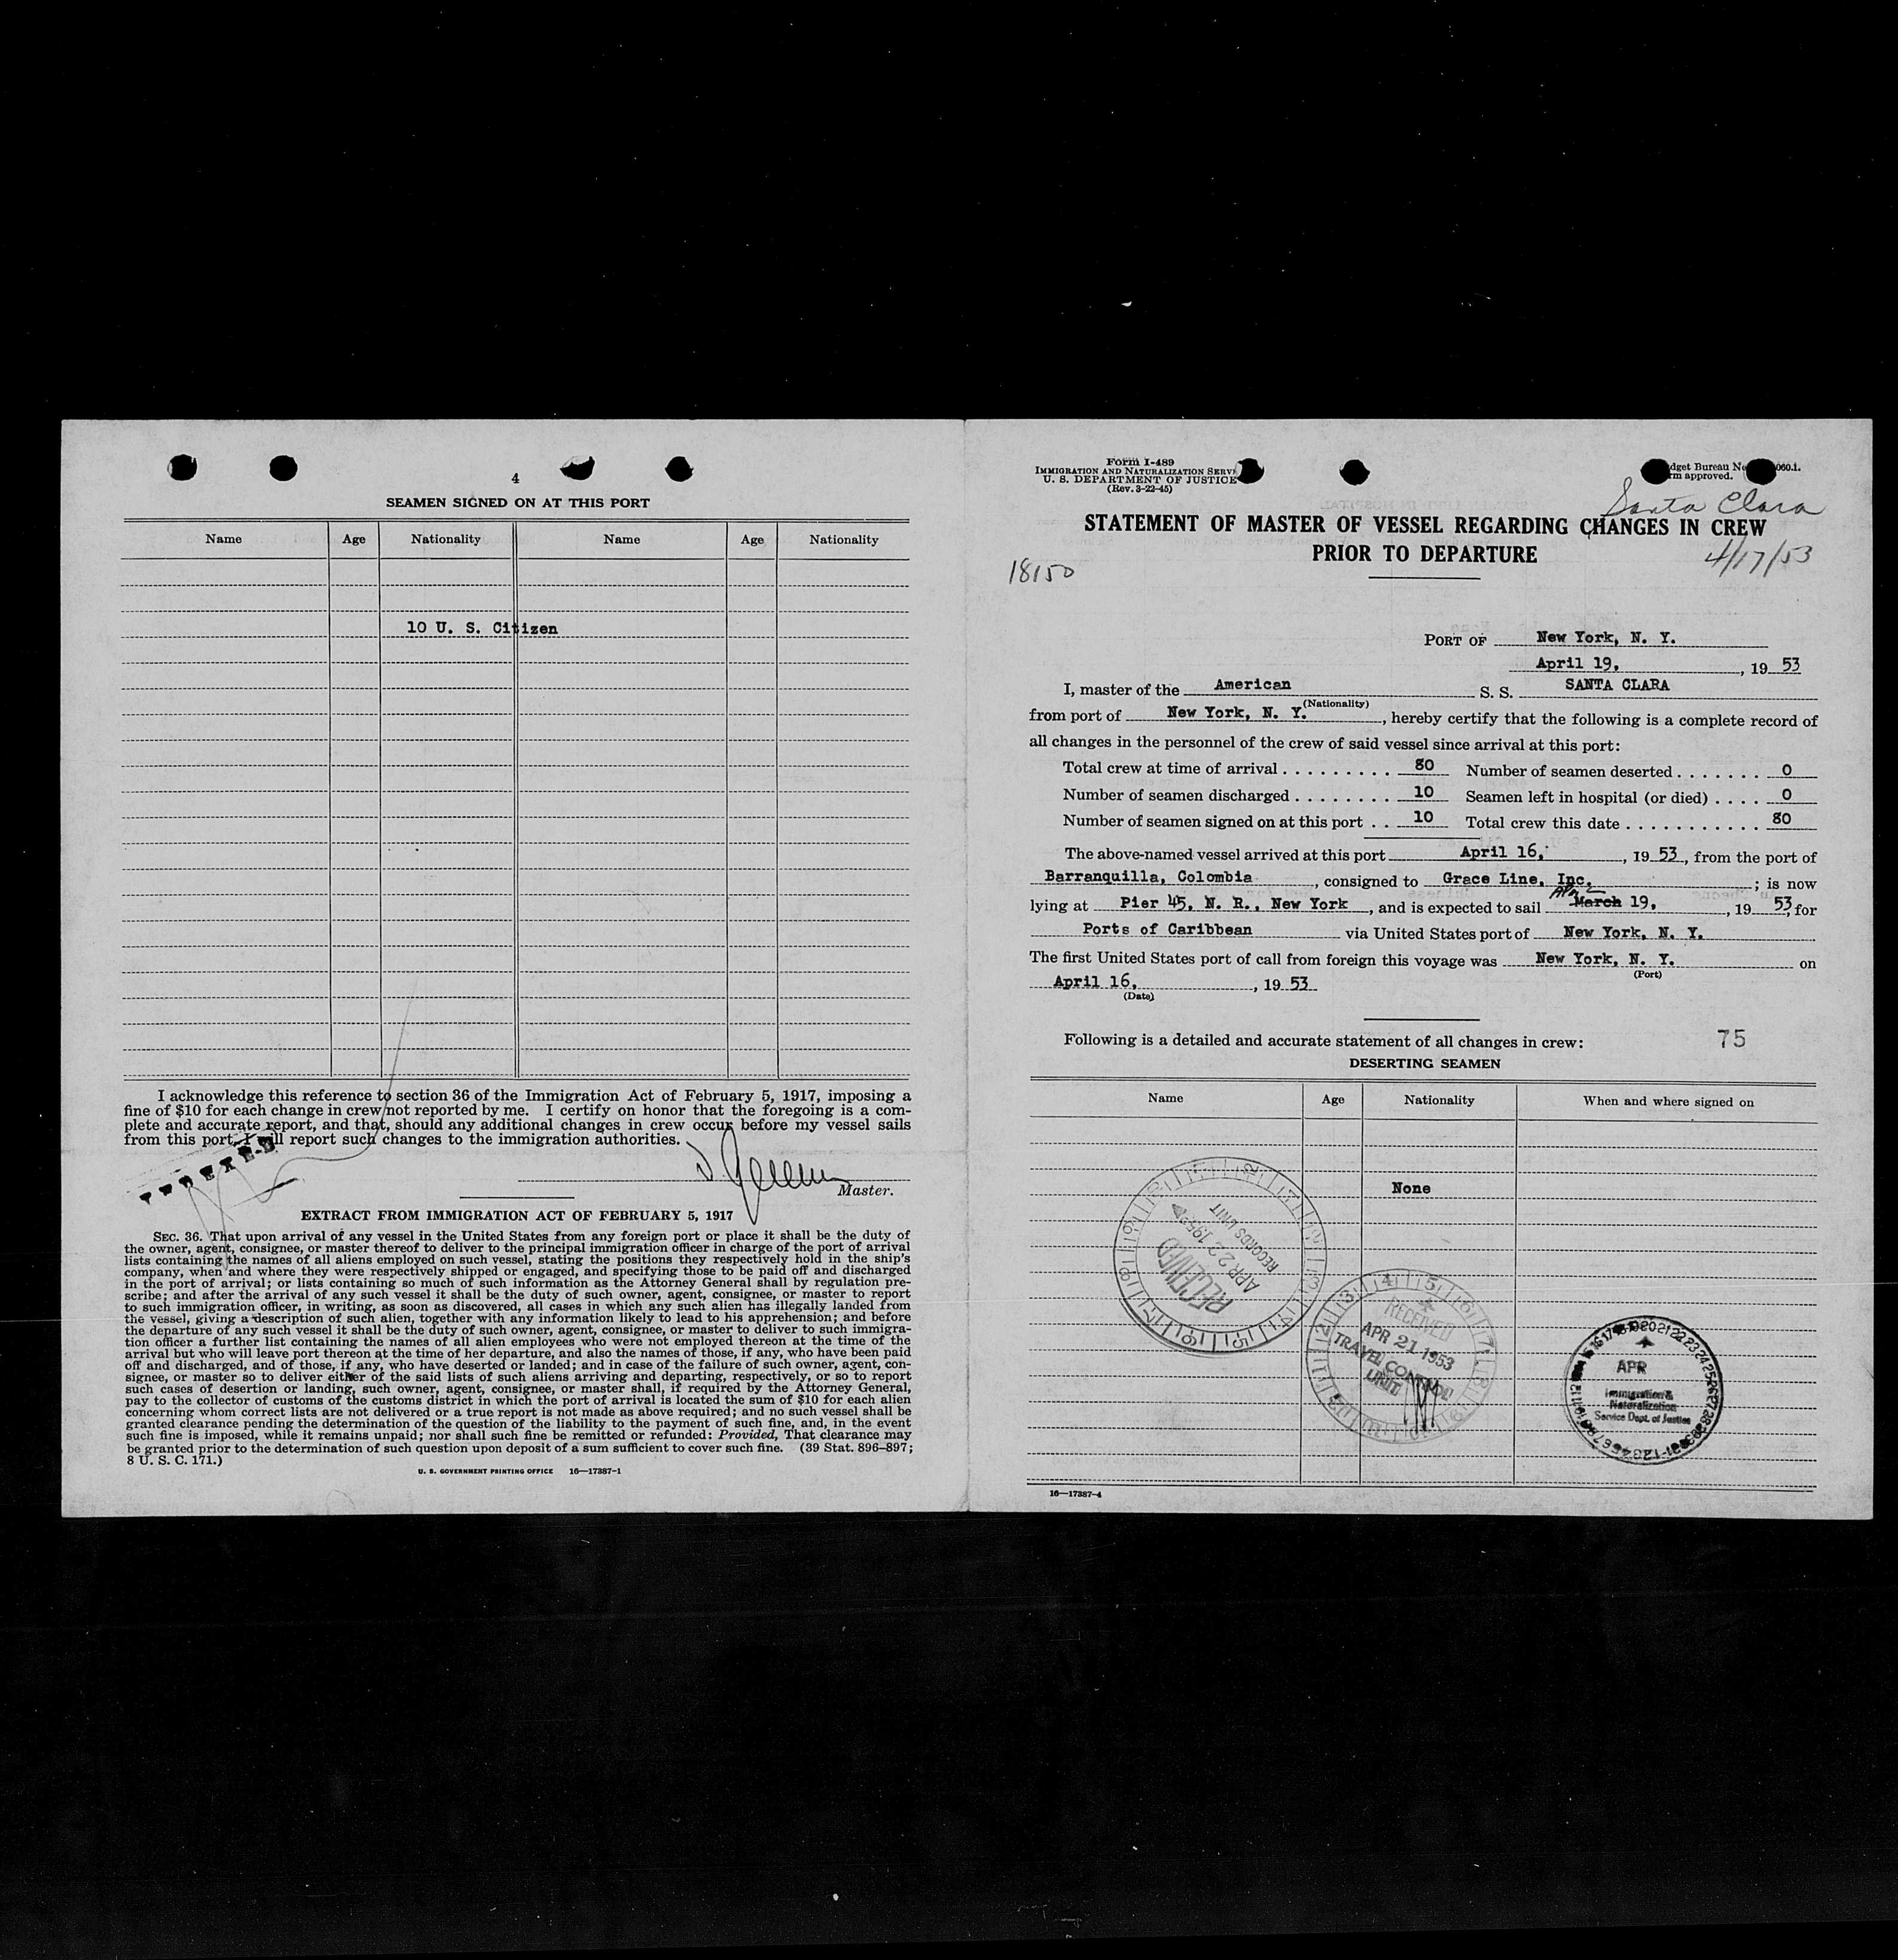 4
SEAMEN SIGNED ON AT THIS PORT
Name Age Nationality Name Age Nationality
10 U. S. Citizen
I acknowledge this reference to section 36 of the Immigration Act of February 5, 1917, imposing a
fine of $10 for each change in crew not reported by me. I certify on honor that the foregoing is a com-
plete and accurate report, and that, should any additional changes in crew occur before my vessel sails
from this port, I will report such changes to the immigration authorities.
Master.
EXTRACT FROM IMMIGRATION ACT OF FEBRUARY 5, 1917
SEC. 36. That upon arrival of any vessel in the United States from any foreign port or place it shall be the duty of
the owner, agent, consignee, or master thereof to deliver to the principal immigration officer in charge of the port of arrival
lists containing the names of all aliens employed on such vessel, stating the positions they respectively hold in the ship's
company, when and where they were respectively shipped or engaged, and specifying those to be paid off and discharged
in the port of arrival; or lists containing so much of such information as the Attorney General shall by regulation pre-
scribe; and after the arrival of any such vessel it shall be the duty of such owner, agent, consignee, or master to report
to such immigration officer, in writing, as soon as discovered, all cases in which any such alien has illegally landed from
the vessel, giving a description of such alien, together with any information likely to lead to his apprehension; and before
the departure of any such vessel it shall be the duty of such owner, agent, consignee, or master to deliver to such immigra-
tion officer a further list containing the names of all alien employees who were not employed thereon at the time of the
arrival but who will leave port thereon at the time of her departure, and also the names of those, if any, who have been paid
off and discharged, and of those, if any, who have deserted or landed; and in case of the failure of such owner, agent, con-
signee, or master so to deliver either of the said lists of such aliens arriving and departing, respectively, or so to report
such cases of desertion or landing, such owner, agent, consignee, or master shall, if required by the Attorney General,
pay to the collector of customs of the customs district in which the port of arrival is located the sum of $10 for each alien
concerning whom correct lists are not delivered or a true report is not made as above required; and no such vessel shall be
granted clearance pending the determination of the question of the liability to the payment of such fine, and, in the event
such fine is imposed, while it remains unpaid; nor shall such fine be remitted or refunded: Provided, That clearance may
be granted prior to the determination of such question upon deposit of a sum sufficient to cover such fine. (39 Stat. 896–897;
8 U. S. C. 171.)
U. S. GOVERNMENT PRINTING OFFICE 16—17387-1
Form I-489
IMMIGRATION AND NATURALIZATION SERVI
U. S. DEPARTMENT OF JUSTICE
(Rev. 3-22-45)
dget Bureau No 060.1.
rm approved.
Santa Clara
STATEMENT OF MASTER OF VESSEL REGARDING CHANGES IN CREW
PRIOR TO DEPARTURE
4/17/53
18150
PORT OF New York, N. Y.
April 19, , 19 53
I, master of the American S. S. SANTA CLARA
(Nationality)
from port of New York, N. Y. , hereby certify that the following is a complete record of
all changes in the personnel of the crew of said vessel since arrival at this port:
Total crew at time of arrival . . . . . . . . . 80 Number of seamen deserted . . . . . . . 0
Number of seamen discharged . . . . . . . . 10 Seamen left in hospital (or died) . . . . 0
Number of seamen signed on at this port . . 10 Total crew this date . . . . . . . . . . . 80
The above-named vessel arrived at this port April 16, , 19 53, from the port of
Barranquilla, Colombia , consigned to Grace Line, Inc. ; is now
lying at Pier 45, N. R., New York , and is expected to sail March 19, , 19 53, for
Ports of Caribbean via United States port of New York, N. Y.
The first United States port of call from foreign this voyage was New York, N. Y. on
(Port)
April 16, , 19 53
(Date)
Following is a detailed and accurate statement of all changes in crew: 75
DESERTING SEAMEN
Name Age Nationality When and where signed on
None
RECEIVED
APR 22 195
RECORDS UNIT
RECEIVED
APR 21 1953
TRAVEL CONTROL
UNIT
APR
Immigration &
Naturalization
Service Dept. of Justice
16—17387-4